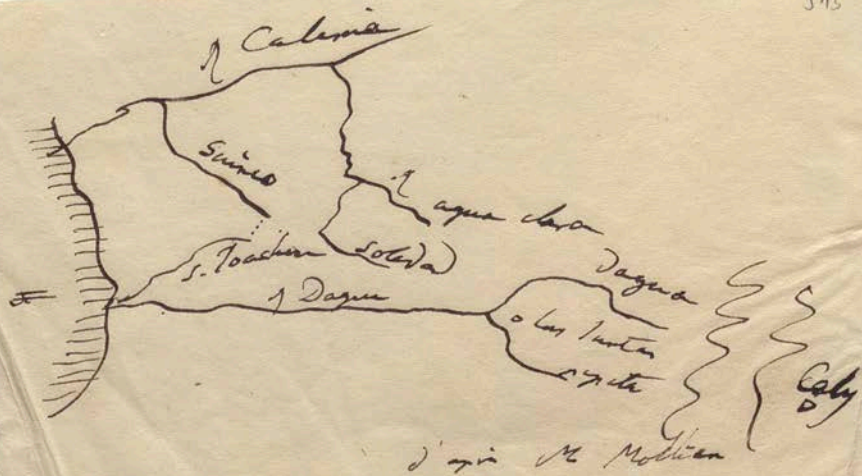 R Calima
Guineo
R agua clara
S. Joachim
Soledad
Dagua
R Dagua
las Juntas
Caly
d'après M Mollien